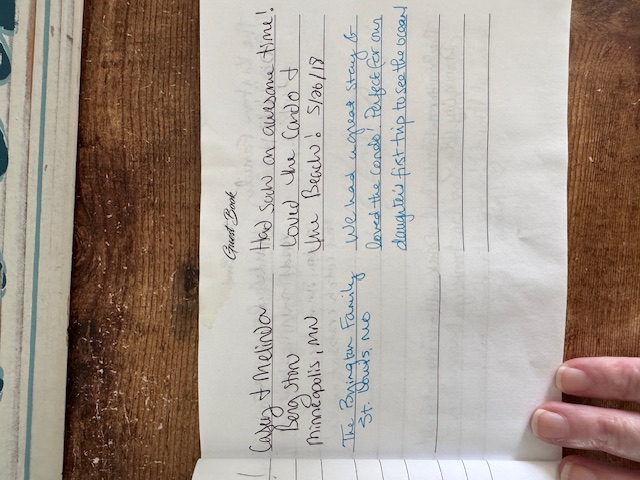 Guest Book
Casey & Melinda Had such an awesome time!
Bergston Loved the Condo &
Minneapolis, MN the Beach! 5/26/18
The Family We had a great stay &
St. Louis, MO loved the condo! Perfect for our
daughter's fist trip to see the ocean